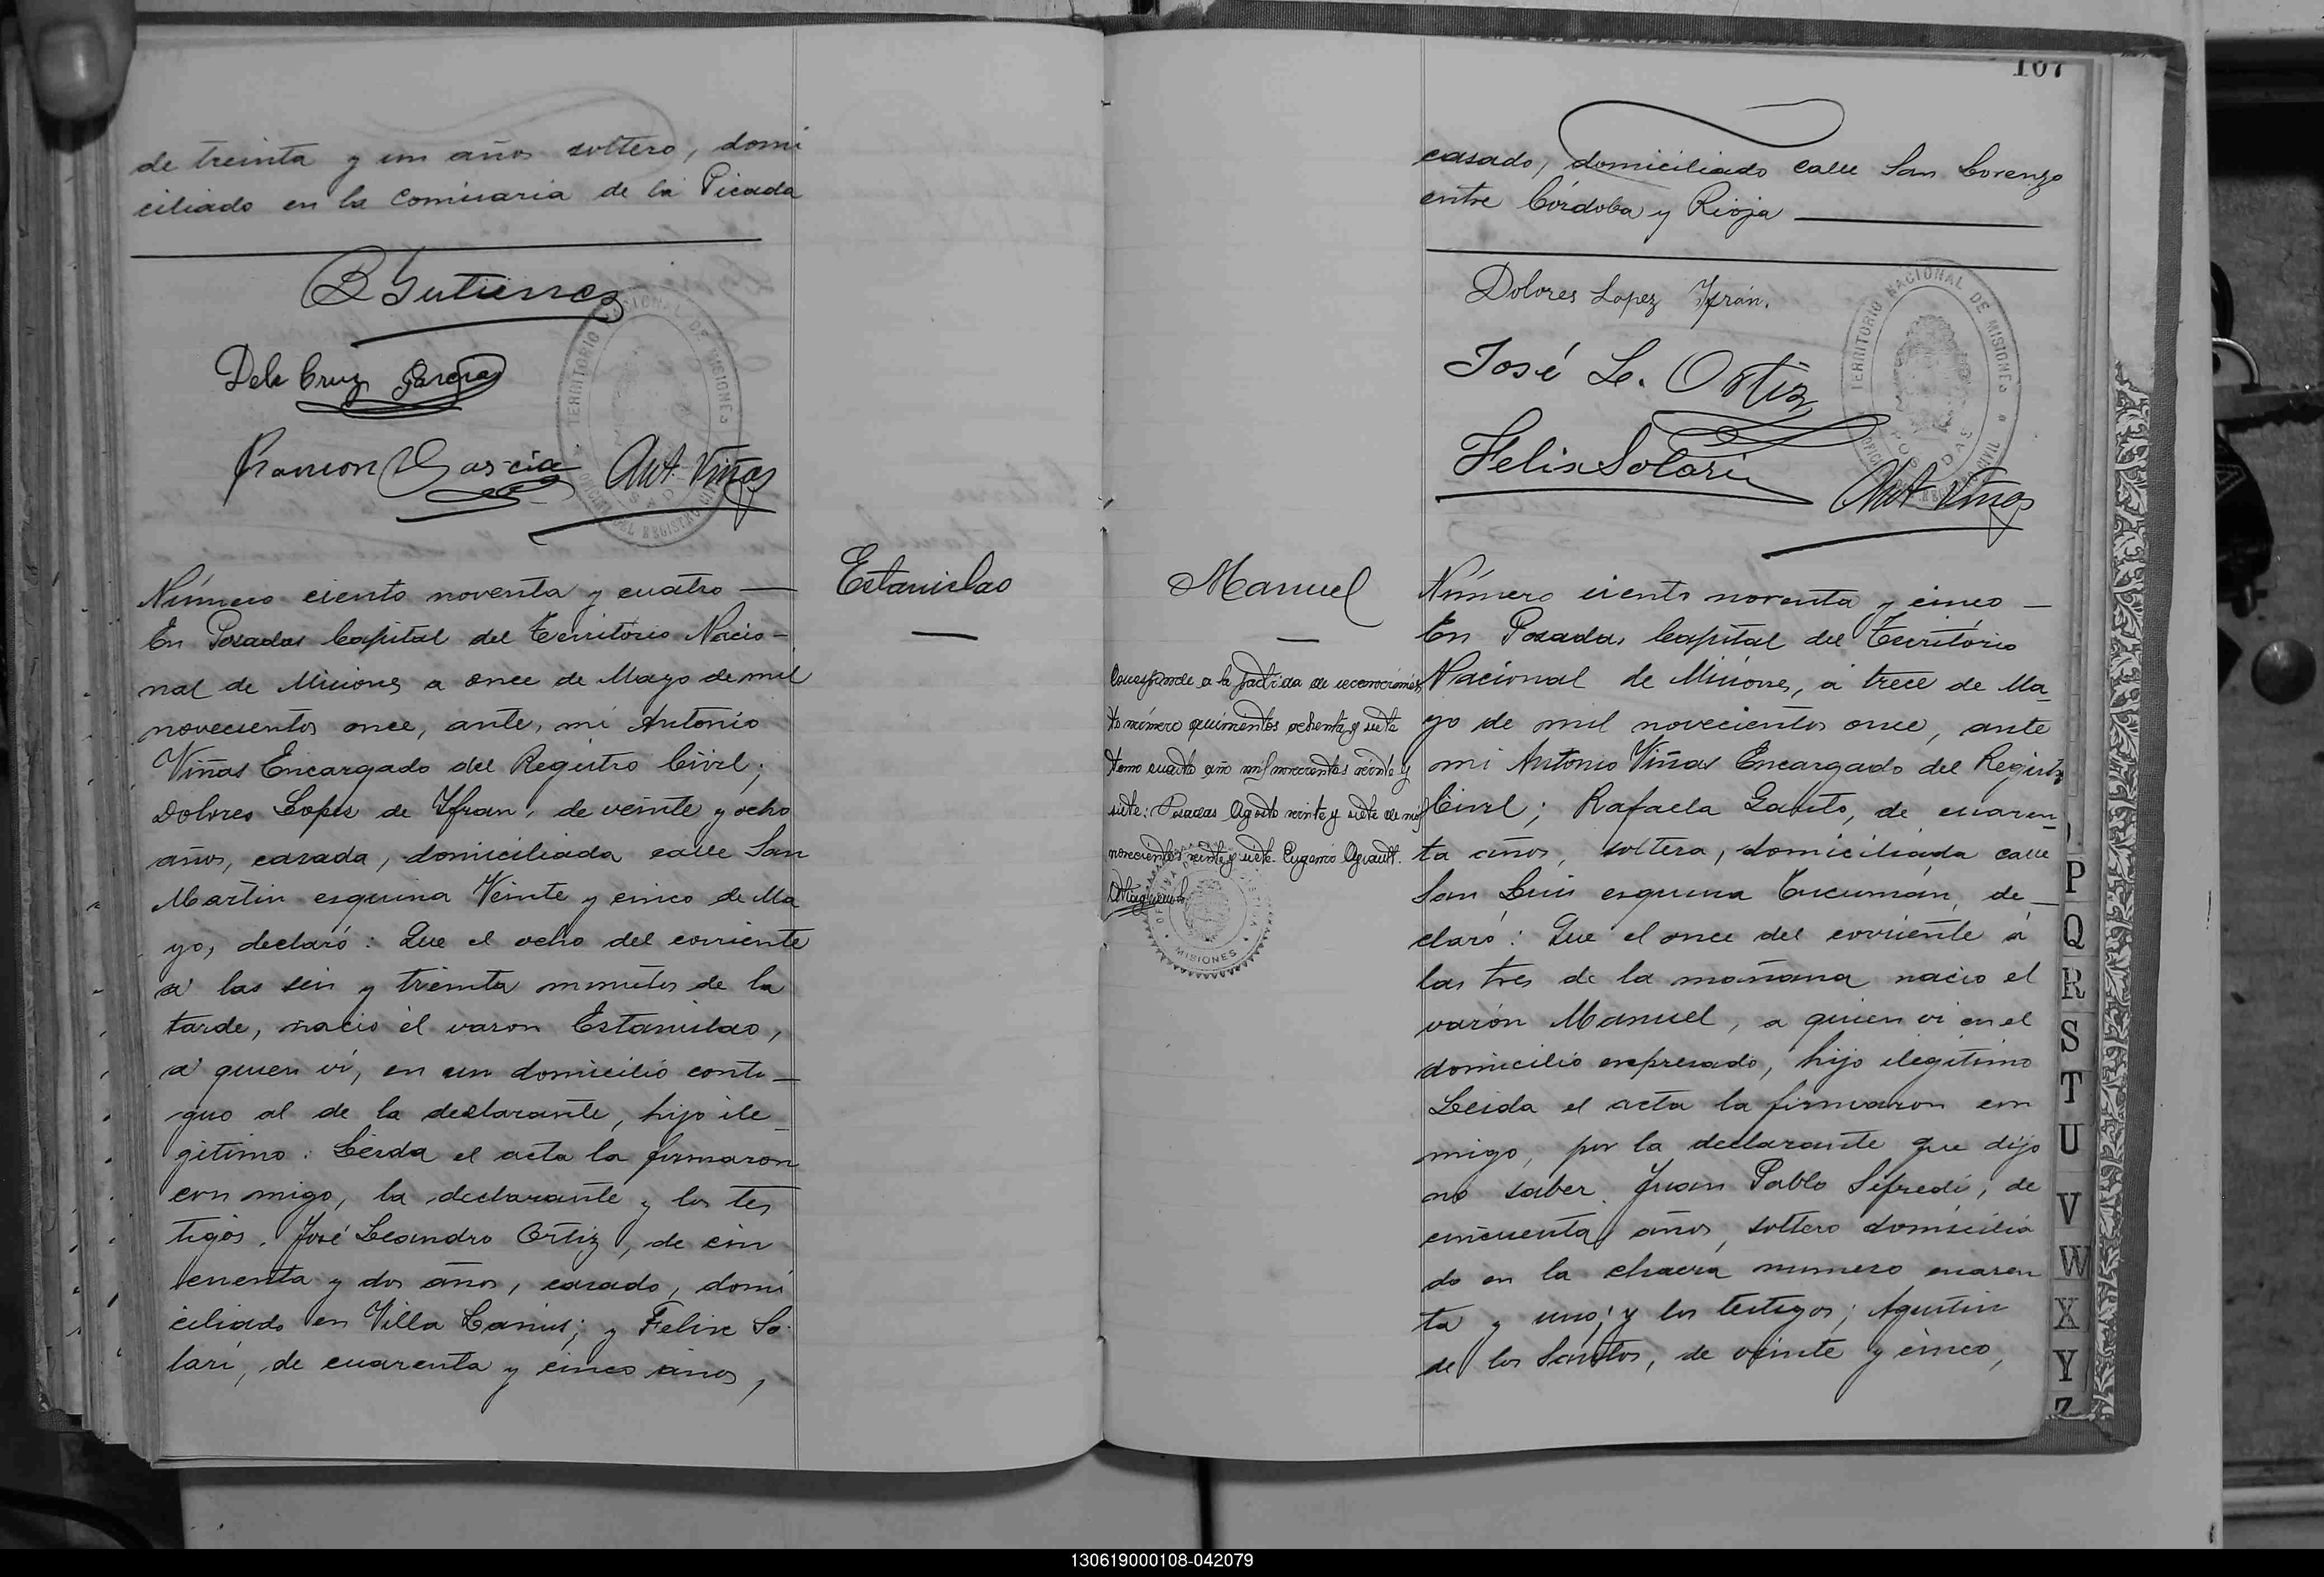 de treinta y un años soltero, domi
ciliado en la Comisaria de la Picada
B Gutierrez
Dela Cruz Garcia
Ramon Garcia Ant. Viñas
TERRITORIO NACIONAL DE MISIONES
OFICINA DEL REGISTRO CIVIL
POSADAS
Número ciento noventa y cuatro —
En Posadas Capital del Territorio Nacio-
nal de Misiones a once de Mayo de mil
novecientos once, ante, mi Antonio
Viñas Encargado del Registro Civil;
Dolores Lopez de Yfran, de veinte y ocho
años, casada, domiciliada calle San
Martin esquina Veinte y cinco de Ma
yo, declaró: Que el ocho del corriente
a las seis y treinta minutos de la
tarde, nació el varon Estanislao,
a quien ví, en un domicilio conti-
guo al de la declarante, hijo ile-
gitimo. Leida el acta la firmaron
con migo, la declarante y los tes
tigos, José Leandro Ortiz, de cin
cuenta y dos años, casado, domi
ciliado en Villa Lanus; y Felix So-
lari, de cuarenta y cinco años,
Estanislao
—
107
casado, domiciliado calle San Lorenzo
entre Córdoba y Rioja —
Dolores Lopez Yfrán.
José L. Ortiz
Felix Solari
Ant Viñas
TERRITORIO NACIONAL DE MISIONES
POSADAS
Manuel
—
Corresponde a la partida de reconocimien
to número quinientos ochenta y siete
tomo cuarto año mil novecientos veinte y
siete: Posadas Agosto veinte y siete de mil
novecientos veinte y siete. Eugenio
MISIONES
Número ciento noventa y cinco —
En Posadas Capital del Territorio
Nacional de Misiones, á trece de Ma-
yo de mil novecientos once, ante
mi Antonio Viñas Encargado del Registro
Civil; Rafaela, de cuaren-
ta años, soltera, domiciliada calle
San Luis esquina Tucumán, de-
claró: Que el once del corriente á
las tres de la mañana nacio el
varón Manuel, a quien vi en el
domicilio expresado, hijo ilegitimo
Leida el acta la firmaron con
migo, por la declarante que dijo
no saber Juan Pablo Sifredi, de
cincuenta años, soltero domicilia
do en la chacra numero cuaren
ta y uno; y los testigos; Agustin
de los Santos, de veinte y cinco,
P
Q
R
S
T
U
V
W
X
Y
Z
130619000108-042079